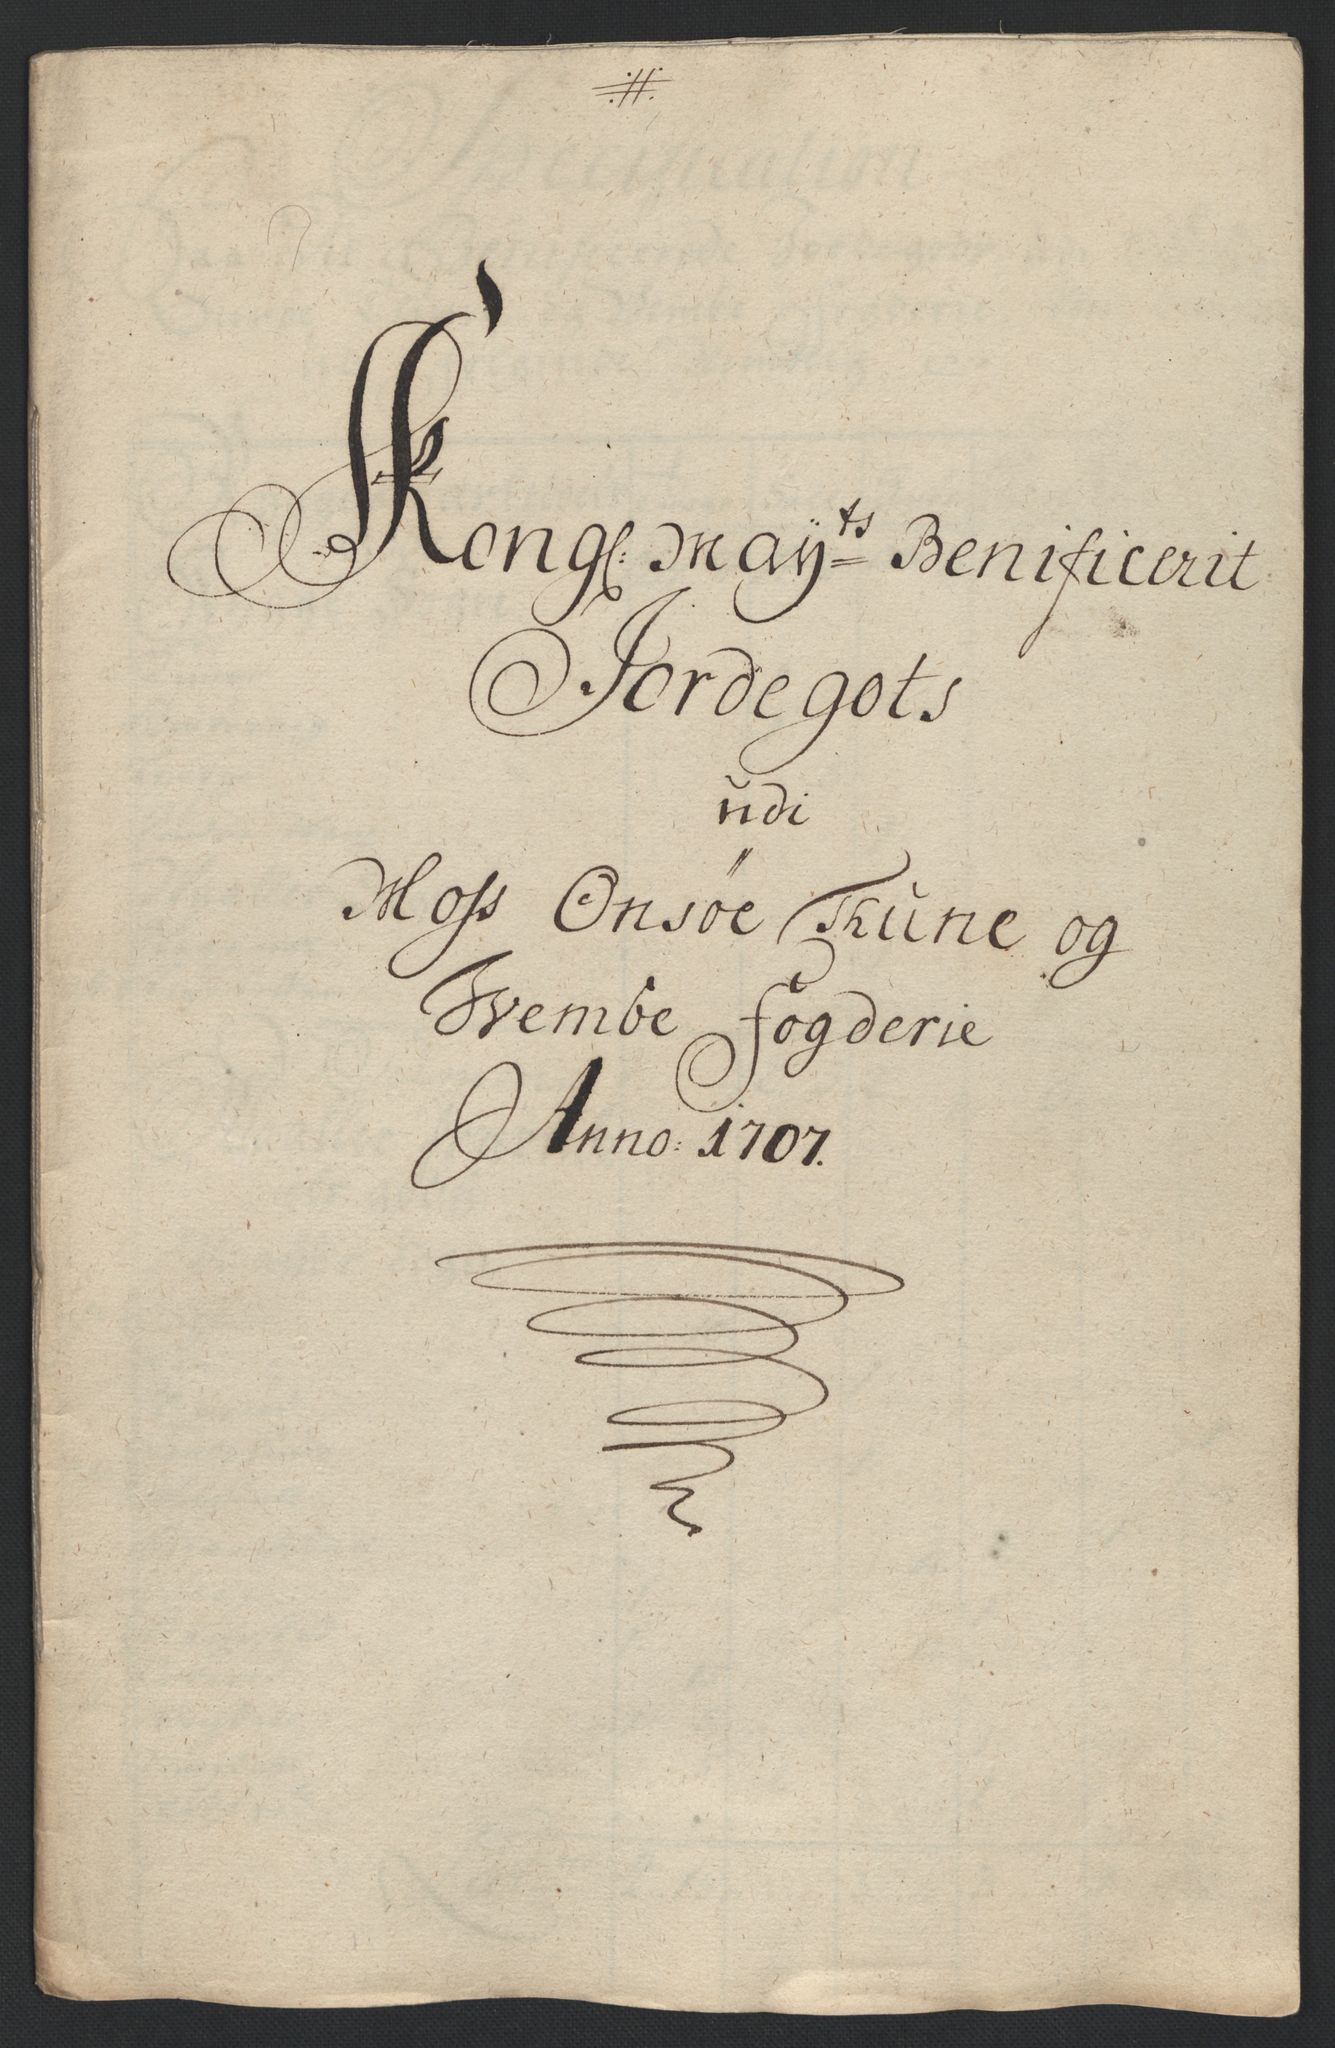 Kongl: Mayts Benificerit
Jordegots
udi
Moss Onsöe Thune og
Wembe fogderie
Anno: 1707.